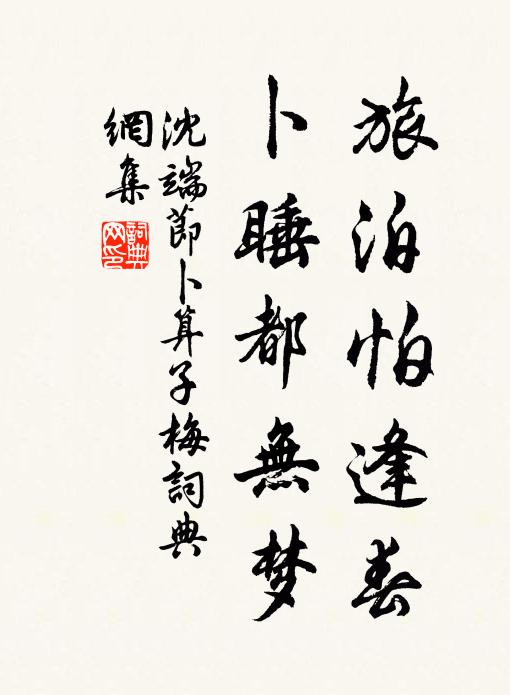 旅泊怕逢春
卜睡都無梦
沈端節卜算子梅詞典
網集
詞典
网印